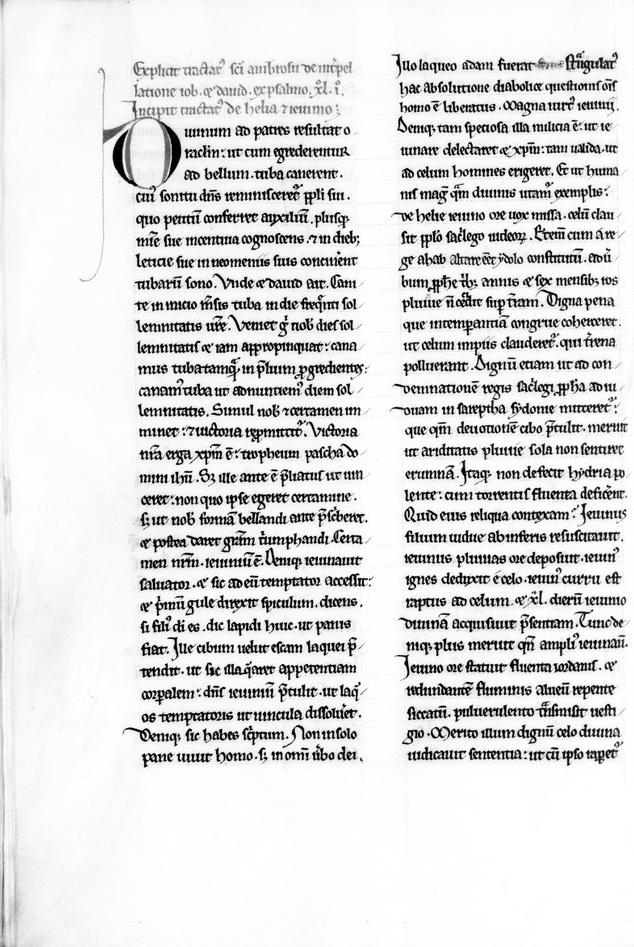 Explicit tractat᷒ sci ambrosii de int̾pel
latione iob · ⁊ dauid · ex psalmo · xl · i ·
Incipit tractat᷒ de helia ⁊ ieiunio ;
Diuinum ad patres resultat o
raclm̄ : ut cum egrederentur
ad bellum · tuba canerent ·
cui᷒ sonitu dns̄ reminisceret᷒ ppli sui ·
quo petitu᷒ conferret auxiliū · plusq;
mīe sue incentiua cognoscens · ⁊ in dieb;
leticie sue in neomeniis suis concinēt
tubarū sono · Vnde ⁊ dauid ait · Cani
te in inicio m̄sis tuba in die freq̄nti sol
lemnitatis ur̄e · Veniet g̊ nob᷒ dies sol
lemnitatis ⁊ iam appropinquat : cana
mus tuba tamq̄ᷓ in p̄lium p̱gredientes :
canam᷒ tuba ut adnuntiem᷒ diem sol
lemnitatis · Simul nob᷒ ⁊ certamen im
minet : ⁊ uictoria rep̱mittit᷒ · Victoria
nr̄a erga xp̄m ē : tropheum pascha do
mini ih̄u · Sȝ ille ante ē p̄liatus ut uin
ceret : non quo ipse egeret certamine ·
sȝ ut nob᷒ formā bellandi ante p̄sc̾beret ·
⁊ postea daret gr̄am t̾umphandi · Certa
men nr̄m · ieiuniū ē · Deniq; ieiunauit
saluator · ⁊ sic ad eū temptator accessit :
⁊ p̾mū gule direxit spiculum · dicens ·
si fili᷒ di es · dic lapidi huic · ut panis
fiat · Ille cibum uelut escam laquei p̄
tendit · ut sic illa q̄reret appetentiam
corpalem : dns̄ ieiuniū p̄tulit · ut laq᷒
os temptatoris ut uincula dissolu̾et ·
Deniq; sic habes sc̾ptum · Non in solo
pane uiuit homo · sȝ in omī u̾bo dei ·
Illo laqueo adam fuerat stᷓngulat᷒
hac absolutione diabolice questionis om̄s
homo ē liberatus · Magna uirt᷒ ieiunii ·
Deniq; tam speciosa illa milicia ē : ut ie
iunare delectaret ⁊ xp̄m : tam ualida · ut
ad celum homines erigeret · Et ut huma
nis mag᷒ q̄m diuinis utam᷒ exemplis :
de helie ieiuno ore uox missa · celū clau
sit pplo᷒ sac̾lego iudeor᷒ · Etenī cum a re
ge ahab altare eēt ydolo constitutū · ad u̾
bum p̱phe t̾b; annis ⁊ sex mensib; ros
pluuie n̄ cecidit sup t̾ram · Digna pena
que intemp̱antiam congrue coherceret ·
ut celum impiis clauderet᷒ · qui t̾rena
polluerant · Dignū etiam ut ad con
demnationē regis sac̾legi p̱pha ad ui
duam in sareptha sydonie mitteret᷒ :
que qm̄ deuotionē cibo p̄tulit · meruit
ut ariditatis pluuie sola non sentiret
erumnā · Itaq; non defecit hydria po
lente : cum torrentis fluenta deficēnt ·
Quid eius reliqua contexam ? Ieiunus
filium uidue ab inferis resuscitauit ·
ieiunus pluuias ore deposuit · ieiun᷒
ignes deduxit e celo · ieiun᷒ curru est
raptus ad celum · ⁊ xl · dierū ieiunio
diuinā acquisiuit p̄sentiam · Tunc de
niq; plus meruit qm̄ ampli᷒ ieiunau̾ ·
Ieiuno ore statuit fluenta iordanis · ⁊
redundantē fluminis alueū repente
siccatū · puluerulento t̾nsmisit uesti
gio · Merito illum dignū celo diuina
iudicauit sententia : ut cū ipso rap̱et᷒